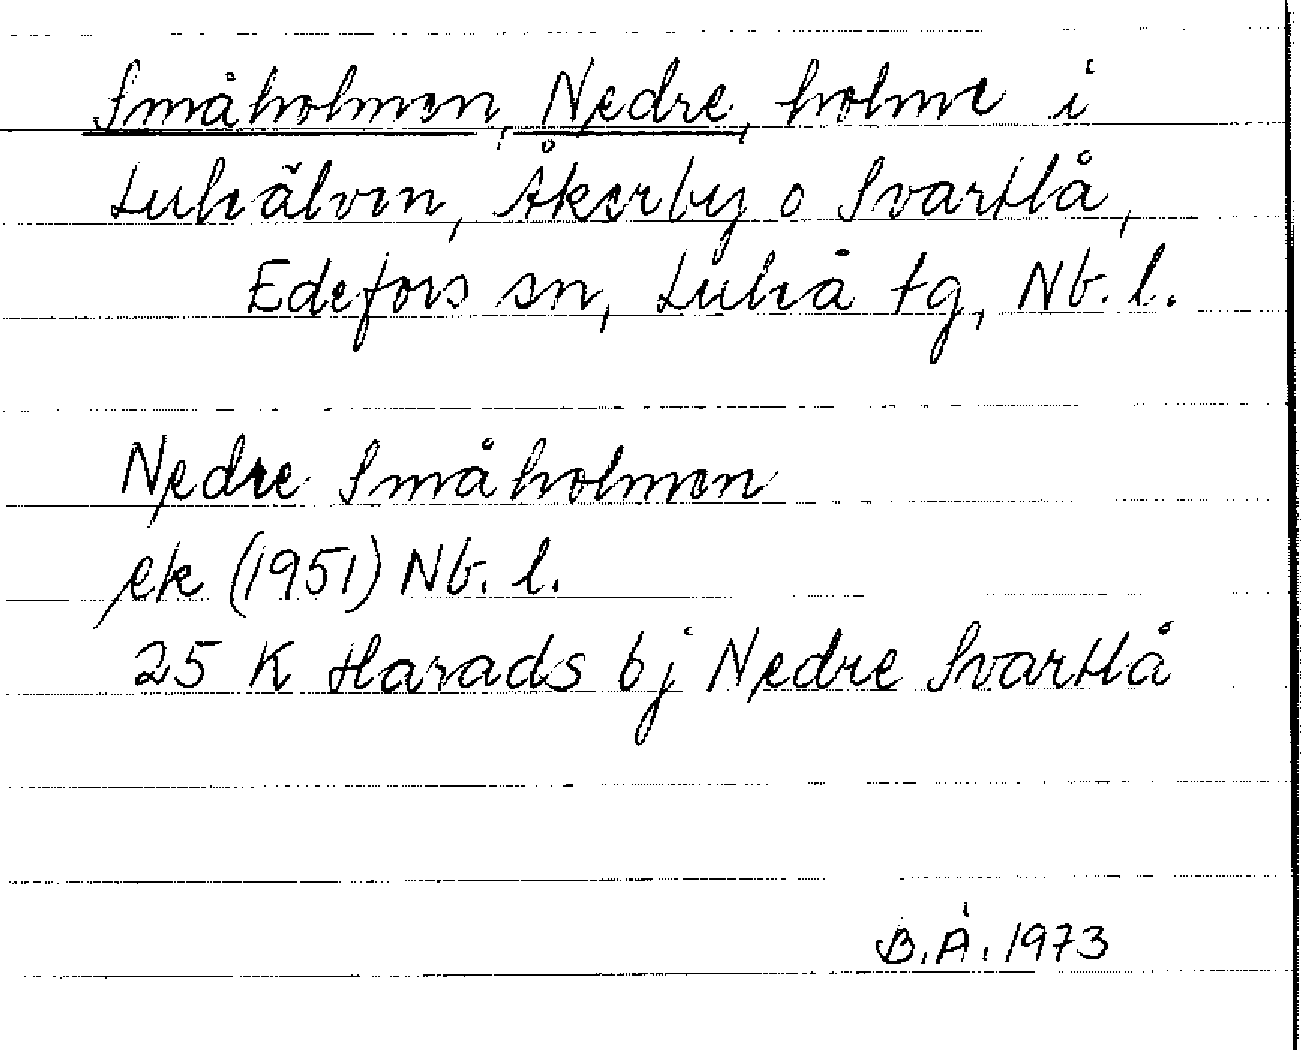 Småholmen, Nedre, holme i
Luleälven, Åkerby o Svartlå,
Edefors sn, Luleå tg, Nb. l.
Nedre Småholmen
ek (1951) Nb. l.
25 K Harads bj Nedre Svartlå
B.Å. 1973